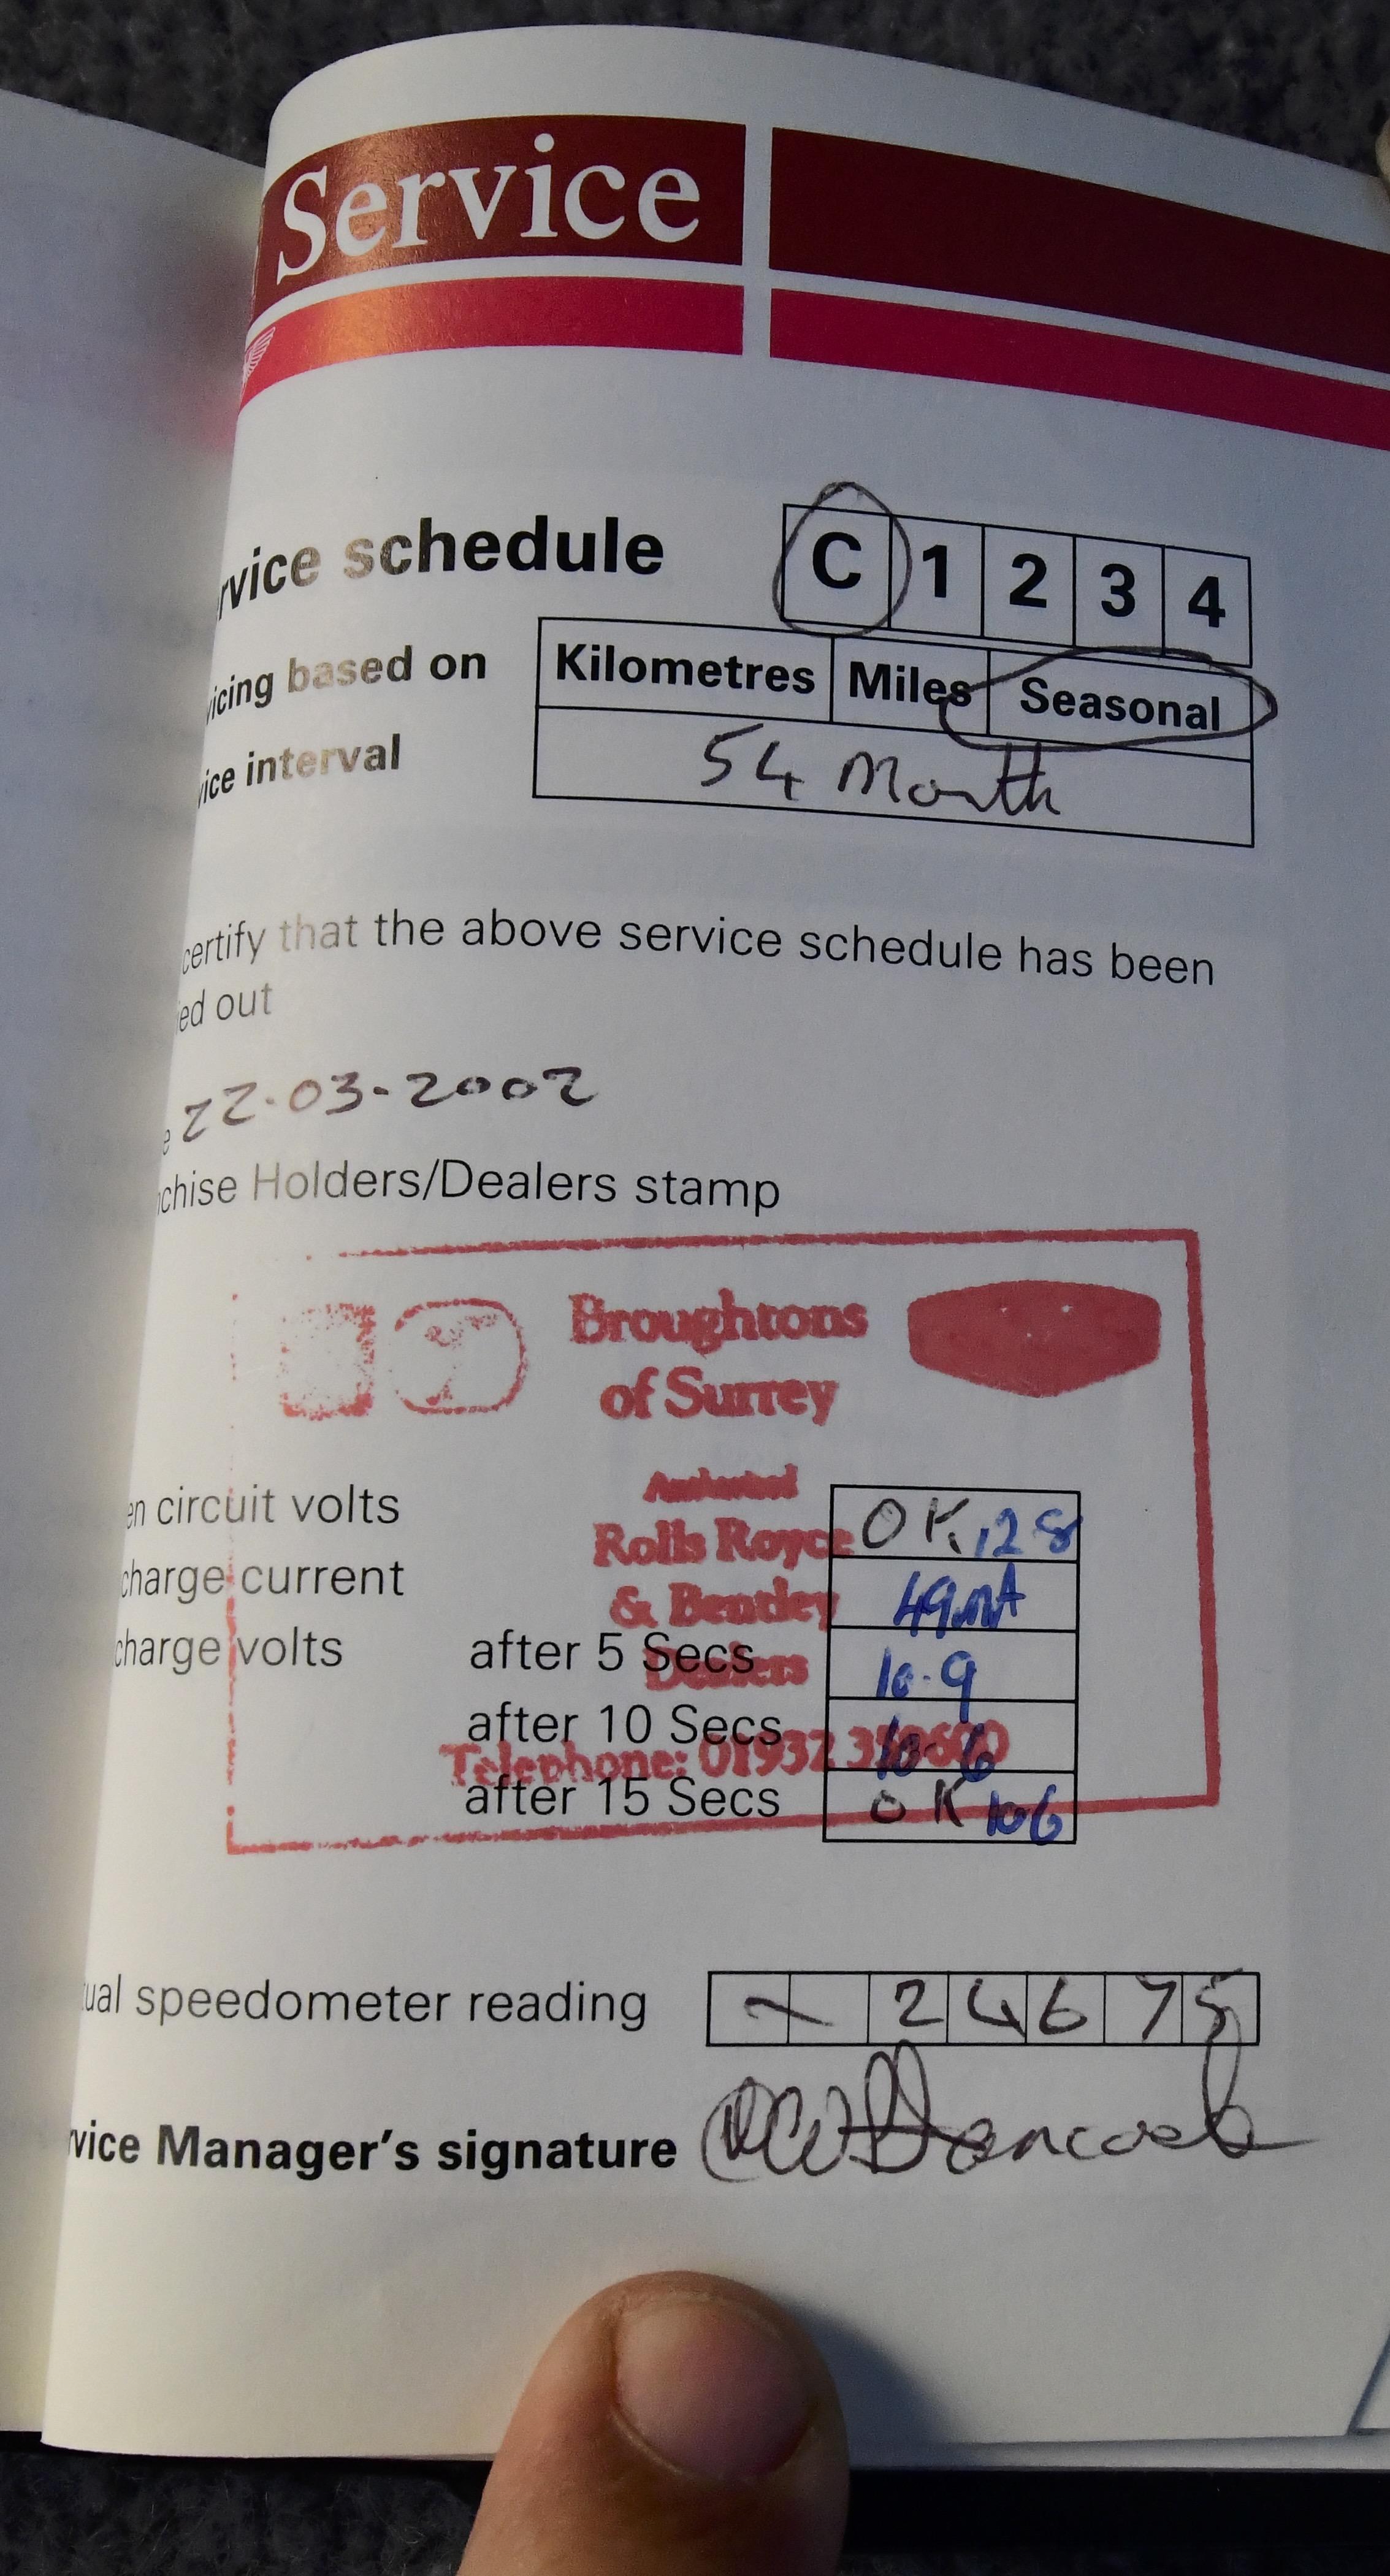 Service
rvice schedule C 1 2 3 4
icing based on Kilometres Miles Seasonal
ice interval 54 Month
certify that the above service schedule has been
ied out
e 22.03-2002
chise Holders/Dealers stamp
Broughtons
of Surrey
Authorised
Rolls Royce
& Bentley
Dealers
en circuit volts OK 12 8
charge current 49mA
charge volts after 5 Secs 10.9
after 10 Secs 10.6
Telephone: 01932
after 15 Secs OK 106
ual speedometer reading 2 4 6 7 5
rvice Manager's signature